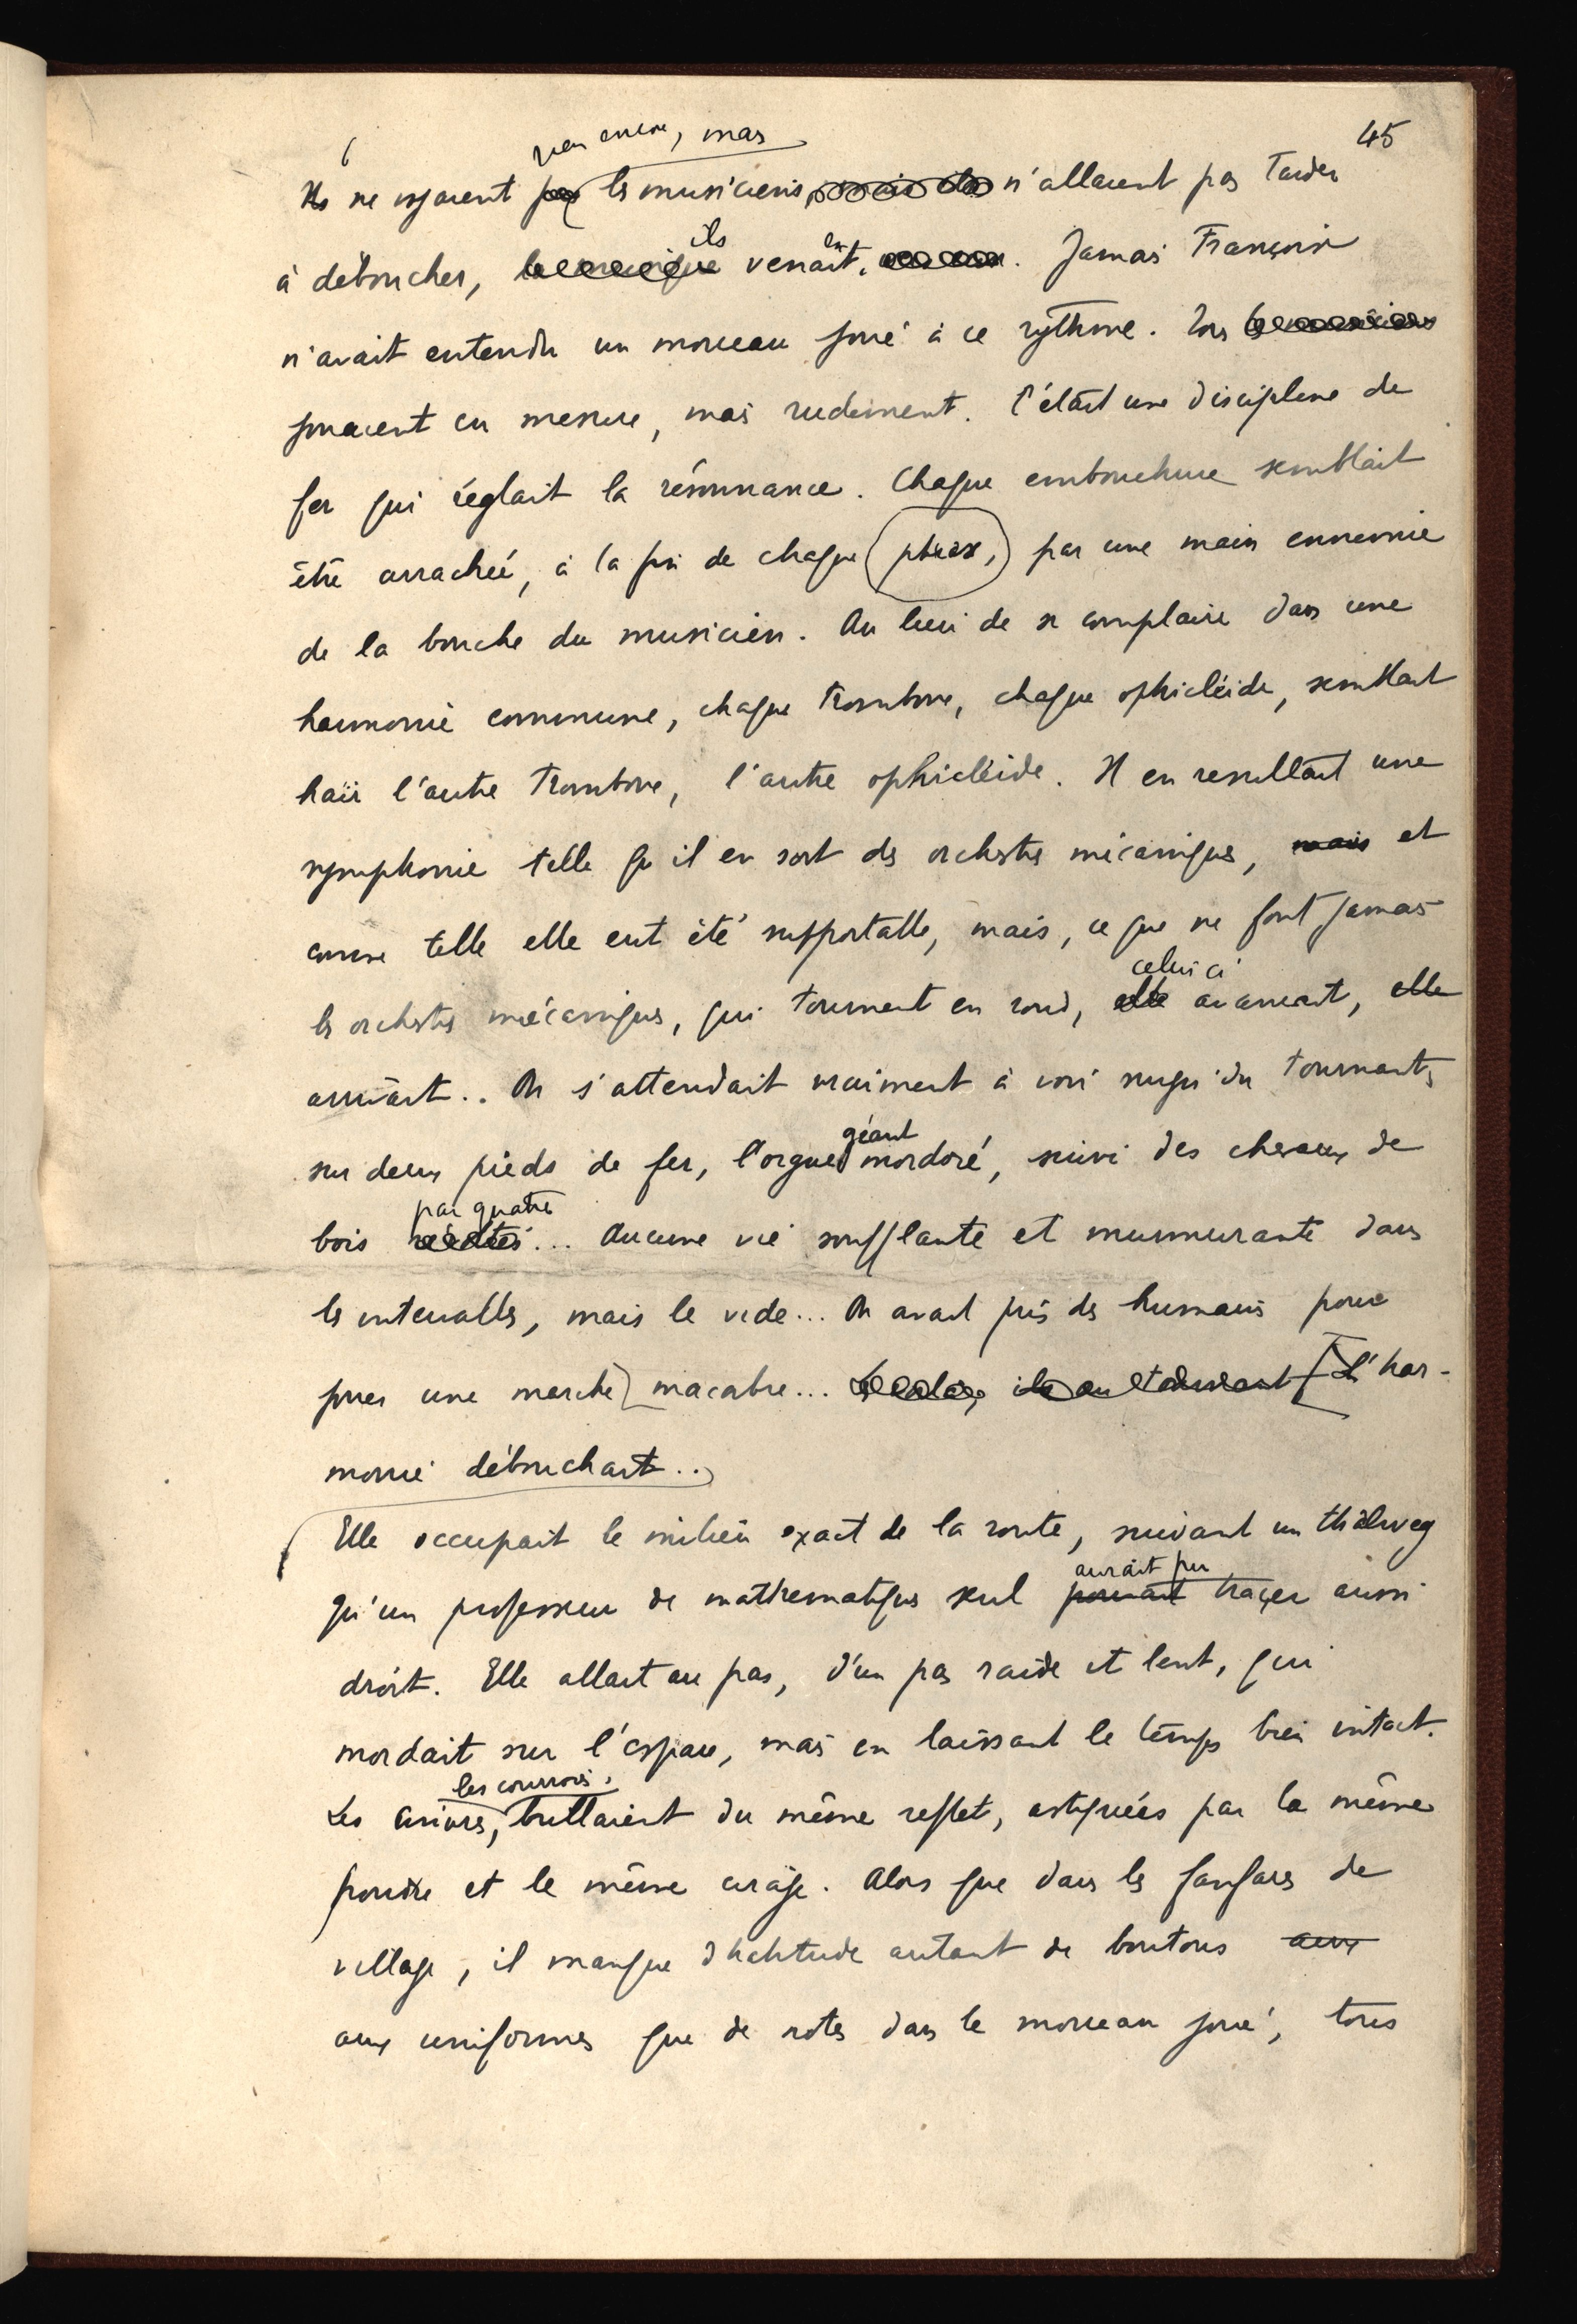 45
pas encore, mais
Ils ne voyaient pas les musiciens, mais ils n'allaient pas tarder
ils en
à déboucher, la musique venait. Jamais François
n'avait entendu un morceau joué à ce rythme. Tous les musiciens
jouaient en mesure, mais rudement. C'était une discipline de
fer qui réglait la résonnance. Chaque embouchure semblait
être arrachée, à la fin de chaque phrase, par une main ennemie
de la bouche du musicien. Au lieu de se complaire dans une
harmonie commune, chaque trombone, chaque ophicléide, semblait
haïr l'autre trombone, l'autre ophicléide. Il en resultait une
symphonie telle qu'il en sort des orchestres mécaniques, mais et
comme telle elle eut été supportable, mais, ce que ne font jamais
celui ci
les orchestres mécaniques, qui tournent en rond, elle avancait, elle
arrivait.. On s'attendait vraiment à voir surgir du tournant,
géant
sur deux pieds de fer, l'orgue mordoré, suivi des chevaux de
par quatre
bois ... Aucune vie soufflante et murmurante dans
les intervalles, mais le vide... On avait pris des humains pour
jouer une marche macabre... L'har-
monie débouchait..
Elle occupait le milieu exact de la route, suivant un thalweg
aurait pu
qu'un professeur de mathematiques seul pouvait traçer aussi
droit. Elle allait au pas, d'un pas raide et lent, qui
mordait sur l'espace, mais en laissant le temps bien intact.
les courroies,
Les cuivres, brillaient du même reflet, astiquées par la même
poudre et le même cirage. Alors que dans les fanfares de
village, il manque d'habitude autant de boutons aux
aux uniformes que de notes dans le morceau joué, tous